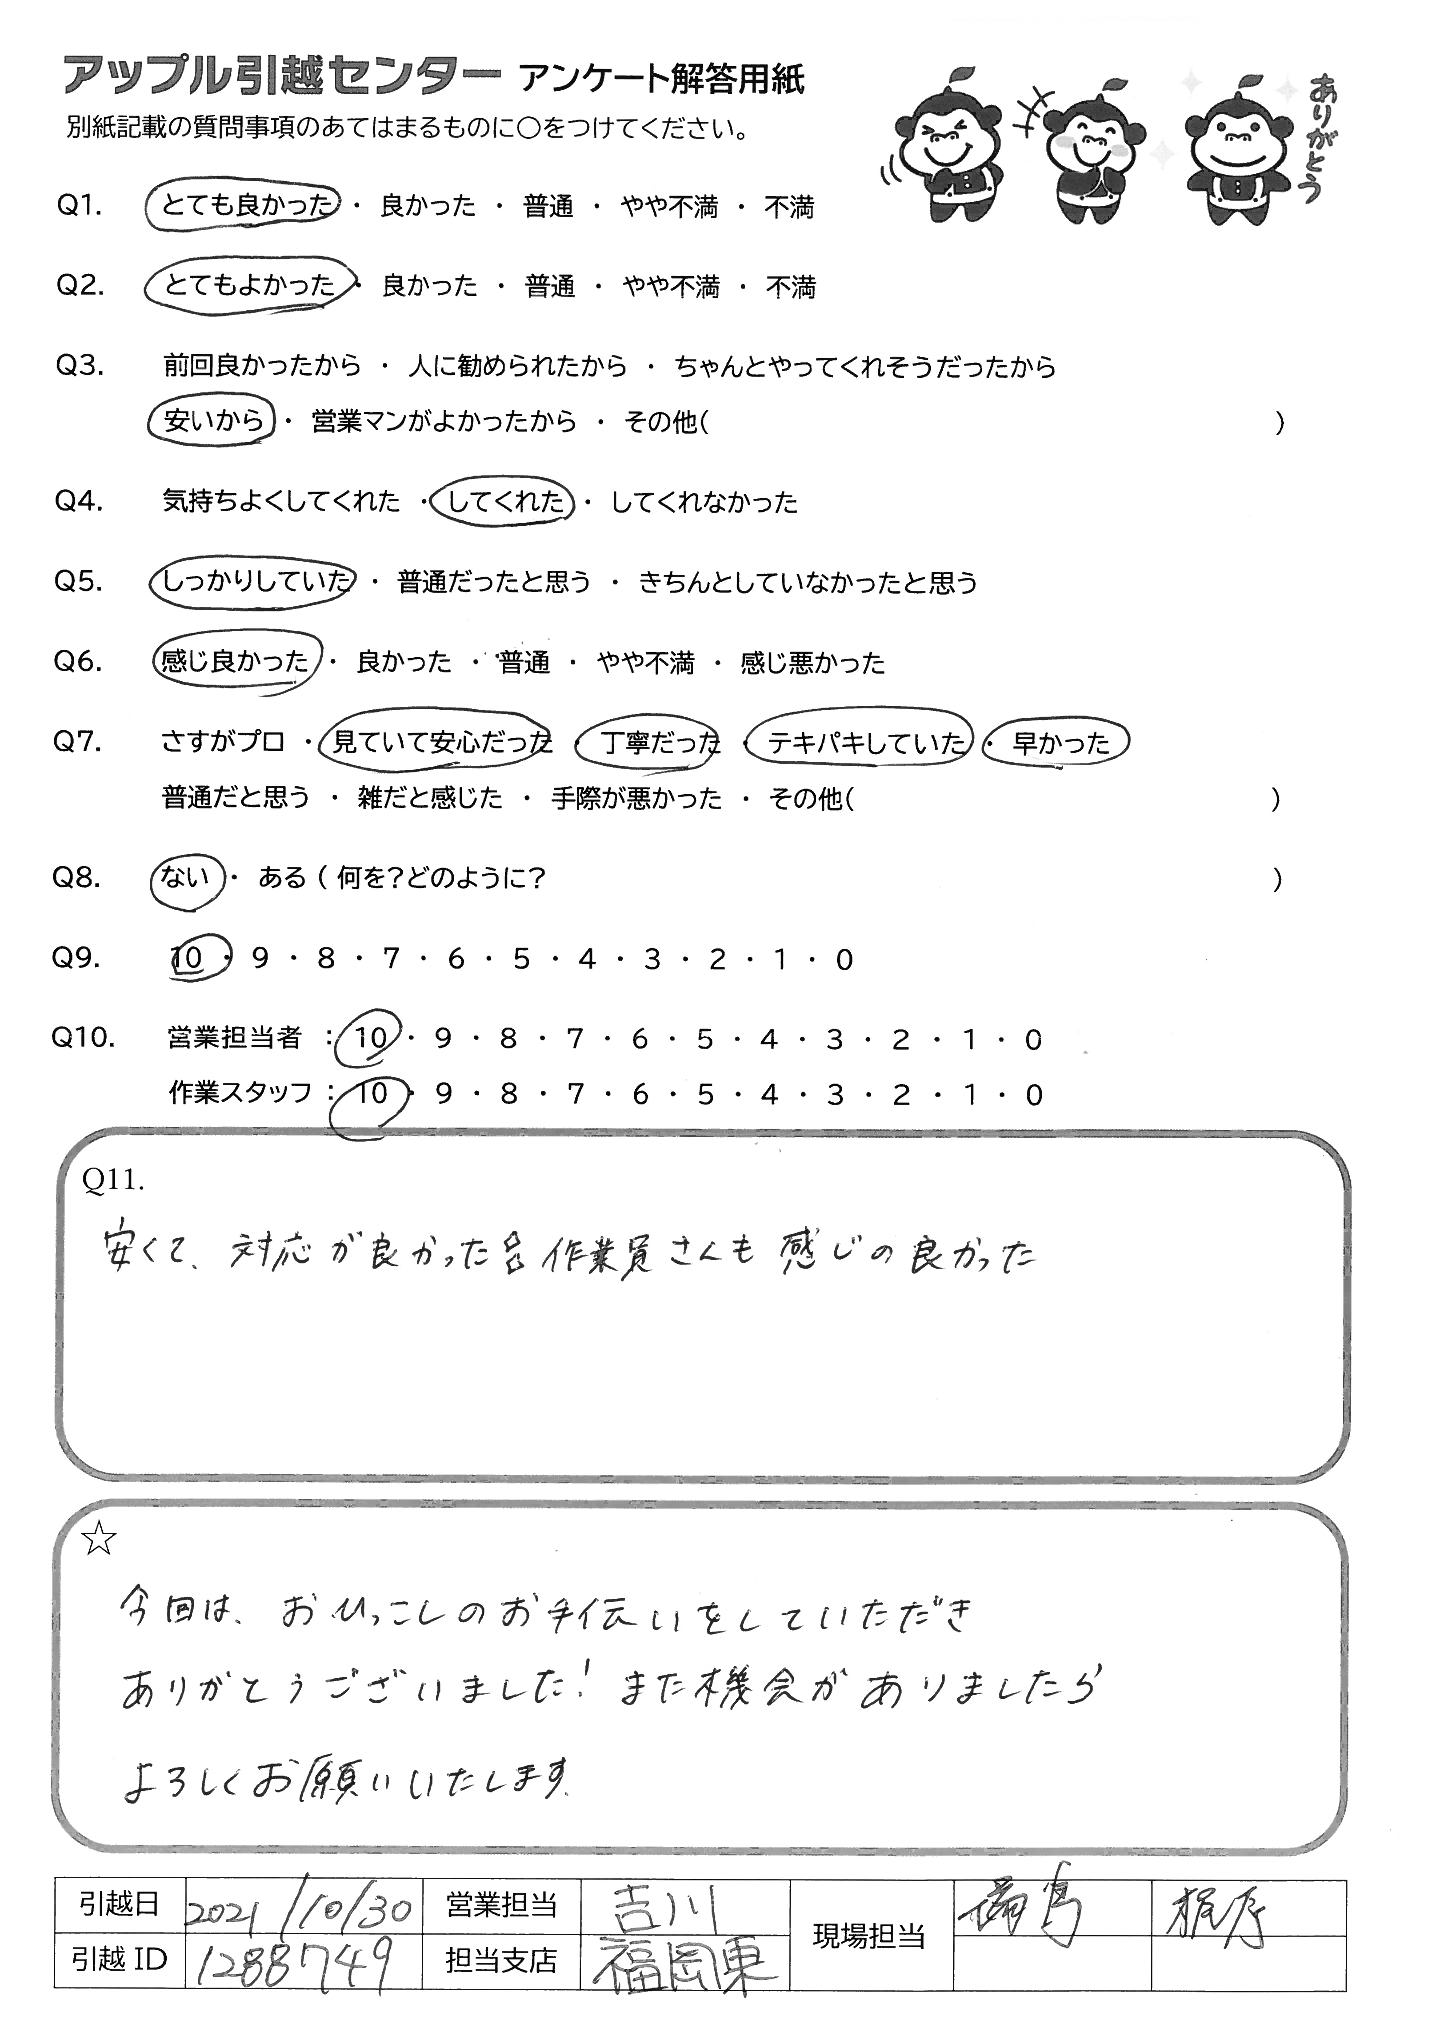 アップル引越センター アンケート解答用紙
別紙記載の質問事項のあてはまるものに○をつけてください。
ありがとう
Q1. とても良かった ・ 良かった ・ 普通 ・ やや不満 ・ 不満
Q2. とてもよかった ・ 良かった ・ 普通 ・ やや不満 ・ 不満
Q3. 前回良かったから ・ 人に勧められたから ・ ちゃんとやってくれそうだったから
安いから ・ 営業マンがよかったから ・ その他( )
Q4. 気持ちよくしてくれた ・ してくれた ・ してくれなかった
Q5. しっかりしていた ・ 普通だったと思う ・ きちんとしていなかったと思う
Q6. 感じ良かった ・ 良かった ・ 普通 ・ やや不満 ・ 感じ悪かった
Q7. さすがプロ ・ 見ていて安心だった ・ 丁寧だった ・ テキパキしていた ・ 早かった
普通だと思う ・ 雑だと感じた ・ 手際が悪かった ・ その他( )
Q8. ない ・ ある ( 何を?どのように? )
Q9. 10 ・ 9 ・ 8 ・ 7 ・ 6 ・ 5 ・ 4 ・ 3 ・ 2 ・ 1 ・ 0
Q10. 営業担当者 : 10 ・ 9 ・ 8 ・ 7 ・ 6 ・ 5 ・ 4 ・ 3 ・ 2 ・ 1 ・ 0
作業スタッフ : 10 ・ 9 ・ 8 ・ 7 ・ 6 ・ 5 ・ 4 ・ 3 ・ 2 ・ 1 ・ 0
Q11.
安くて、対応が良かった 作業員さんも感じの良かった
☆
今回は、おひっこしのお手伝いをしていただき
ありがとうございました!また機会がありましたら
よろしくお願いいたします.
引越日 2021/10/30 営業担当 吉川 現場担当
引越ID 1288749 担当支店 福岡東